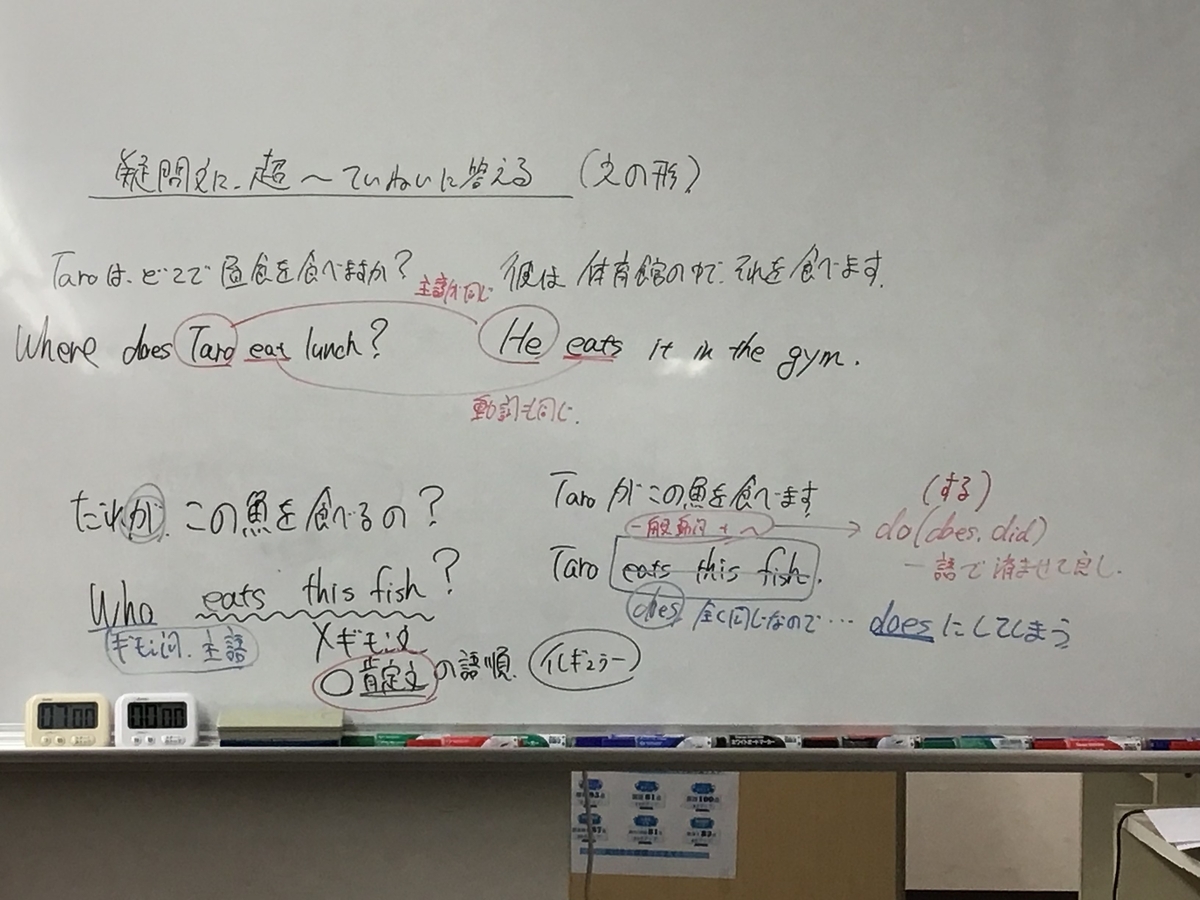 疑問文に、超〜ていねいに答える (文の形)
Taroは、どこで昼食を食べますか?
彼は体育館の中で、それを食べます。
主語が同じ
Where does Taro eat lunch?
He eats it in the gym.
動詞も同じ。
だれが この魚を食べるの?
Taro がこの魚を食べます
一般動詞+〜
(する)
do(does, did)
一語で済ませて良し.
Who eats this fish?
Taro eats this fish.
does 全く同じなので… doesにしてしまう
ギモン詞、主語
×ギモン文
○肯定文の語順. (イレギュラー)
07 00
00 00
ホワイトボードマーカー